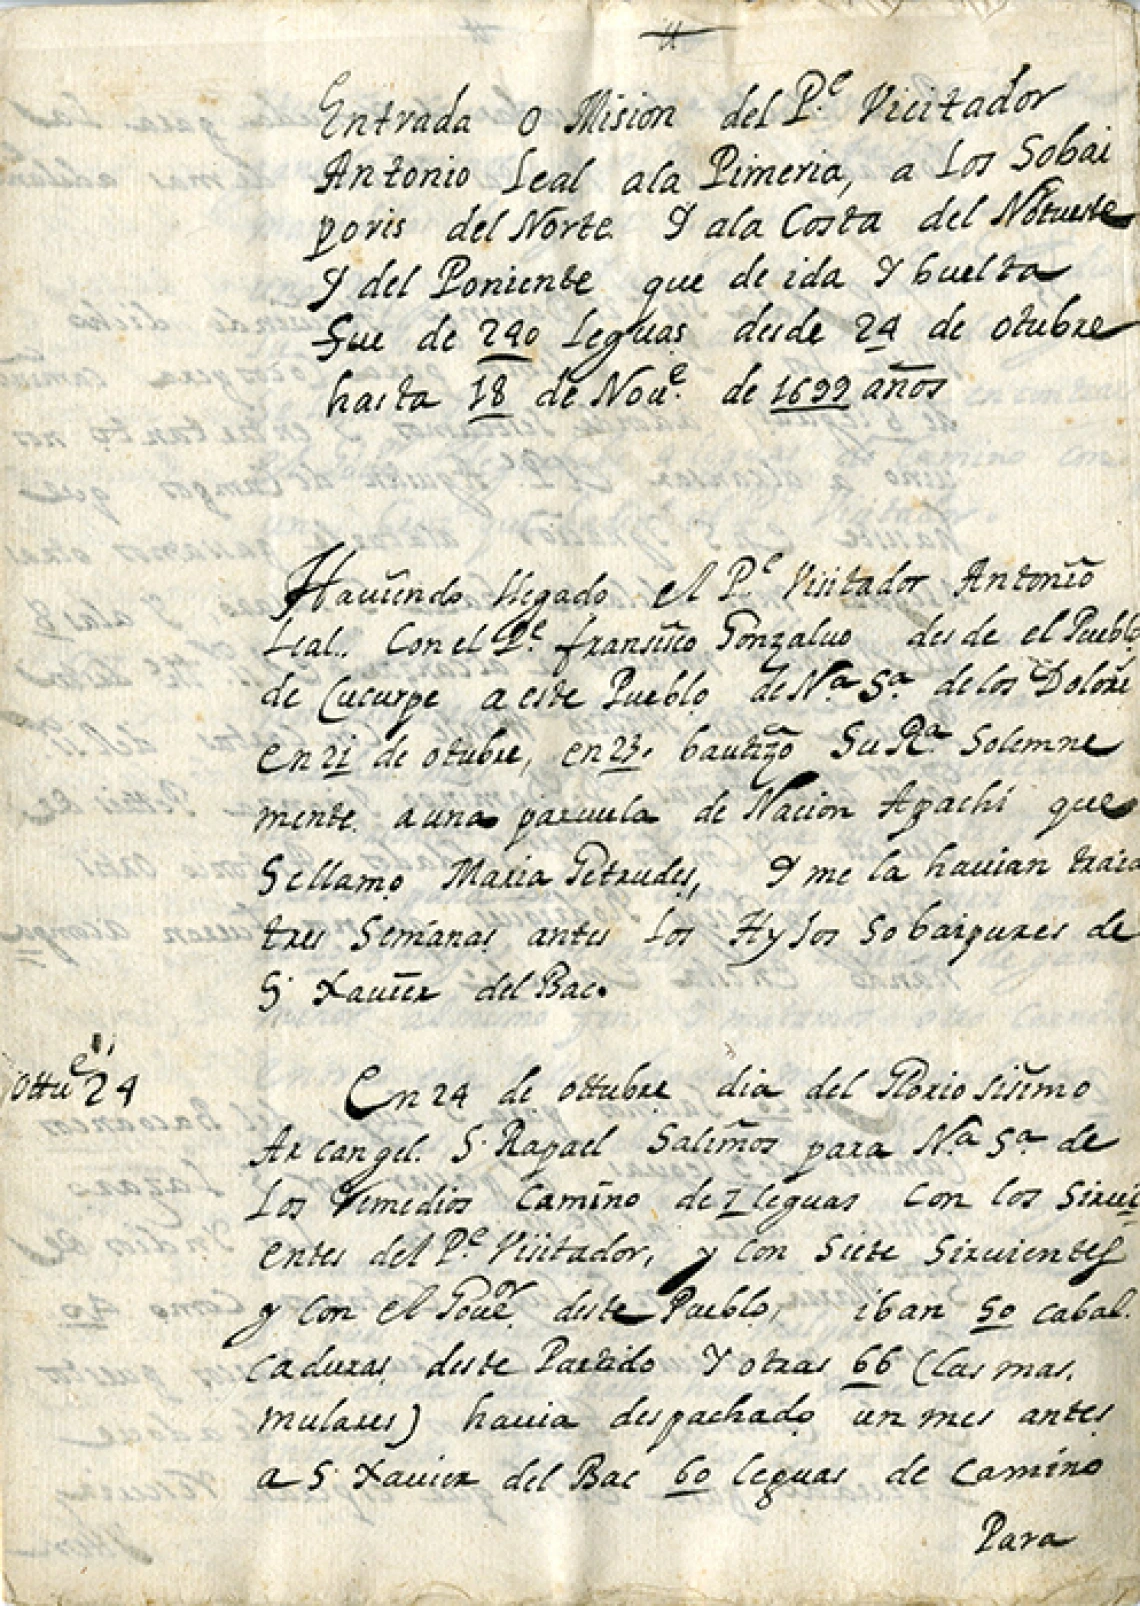 Entrada o Mision del P.e Vicitador
Antonio Leal ala Pimeria, a los Sobai
poris del Norte. Y ala Costa del Norueste
Y del Poniente que de ida Y buelta
fue de 240 Leguas desde 24 de otubre
hasta 18 de Nou.e de 1699 años
Hauiendo llegado el P.e Visitador Antonio
Leal. Con el P.e fransisco Gonzaluo desde el Pueblo
de Cucurpe a este Pueblo de N.a S.a de los Dolore
en 21 de otubre, en 23. bautizo Su R.a Solemne
mente a una paruula de Nacion Apachi que
Se llamo Maria Getrudes, Y me la hauian traid
tres Semanas antes Los Hyjos Sobaipures de
S. Xauier del Bac.
Ottu.e 24
En 24 de ottubre dia del Gloriosisimo
Arcangel S. Rapael Salimos para N.a S.a de
Los Remedios Camino de 7 leguas Con los Sirui
entes del P.e Visitador, y con Siete Siruientes
y con el Gou.or deste Pueblo, iban 90 cabal.
caduras deste Partido Y otras 66 (las mas.
mulares) hauia despachado un mes antes
a S. Xauier del Bac 60 leguas de Camino
Para